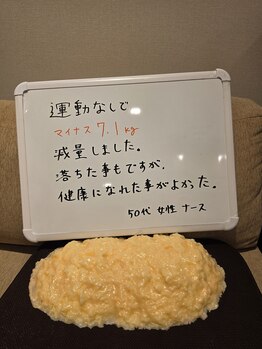 運動なしで
マイナス7.1kg
減量しました。
落ちた事もですが、
健康になれた事がよかった。
50代 女性 ナース